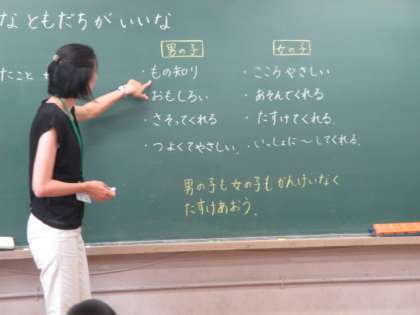 なともだちがいいな
たこと
男の子
・もの知り
・おもしろい
・さそってくれる
・つよくてやさしい。
女の子
・こころやさしい
・あそんでくれる
・たすけてくれる。
・いっしょに〜してくれる。
男の子も女の子もかんけいなく
たすけあおう。